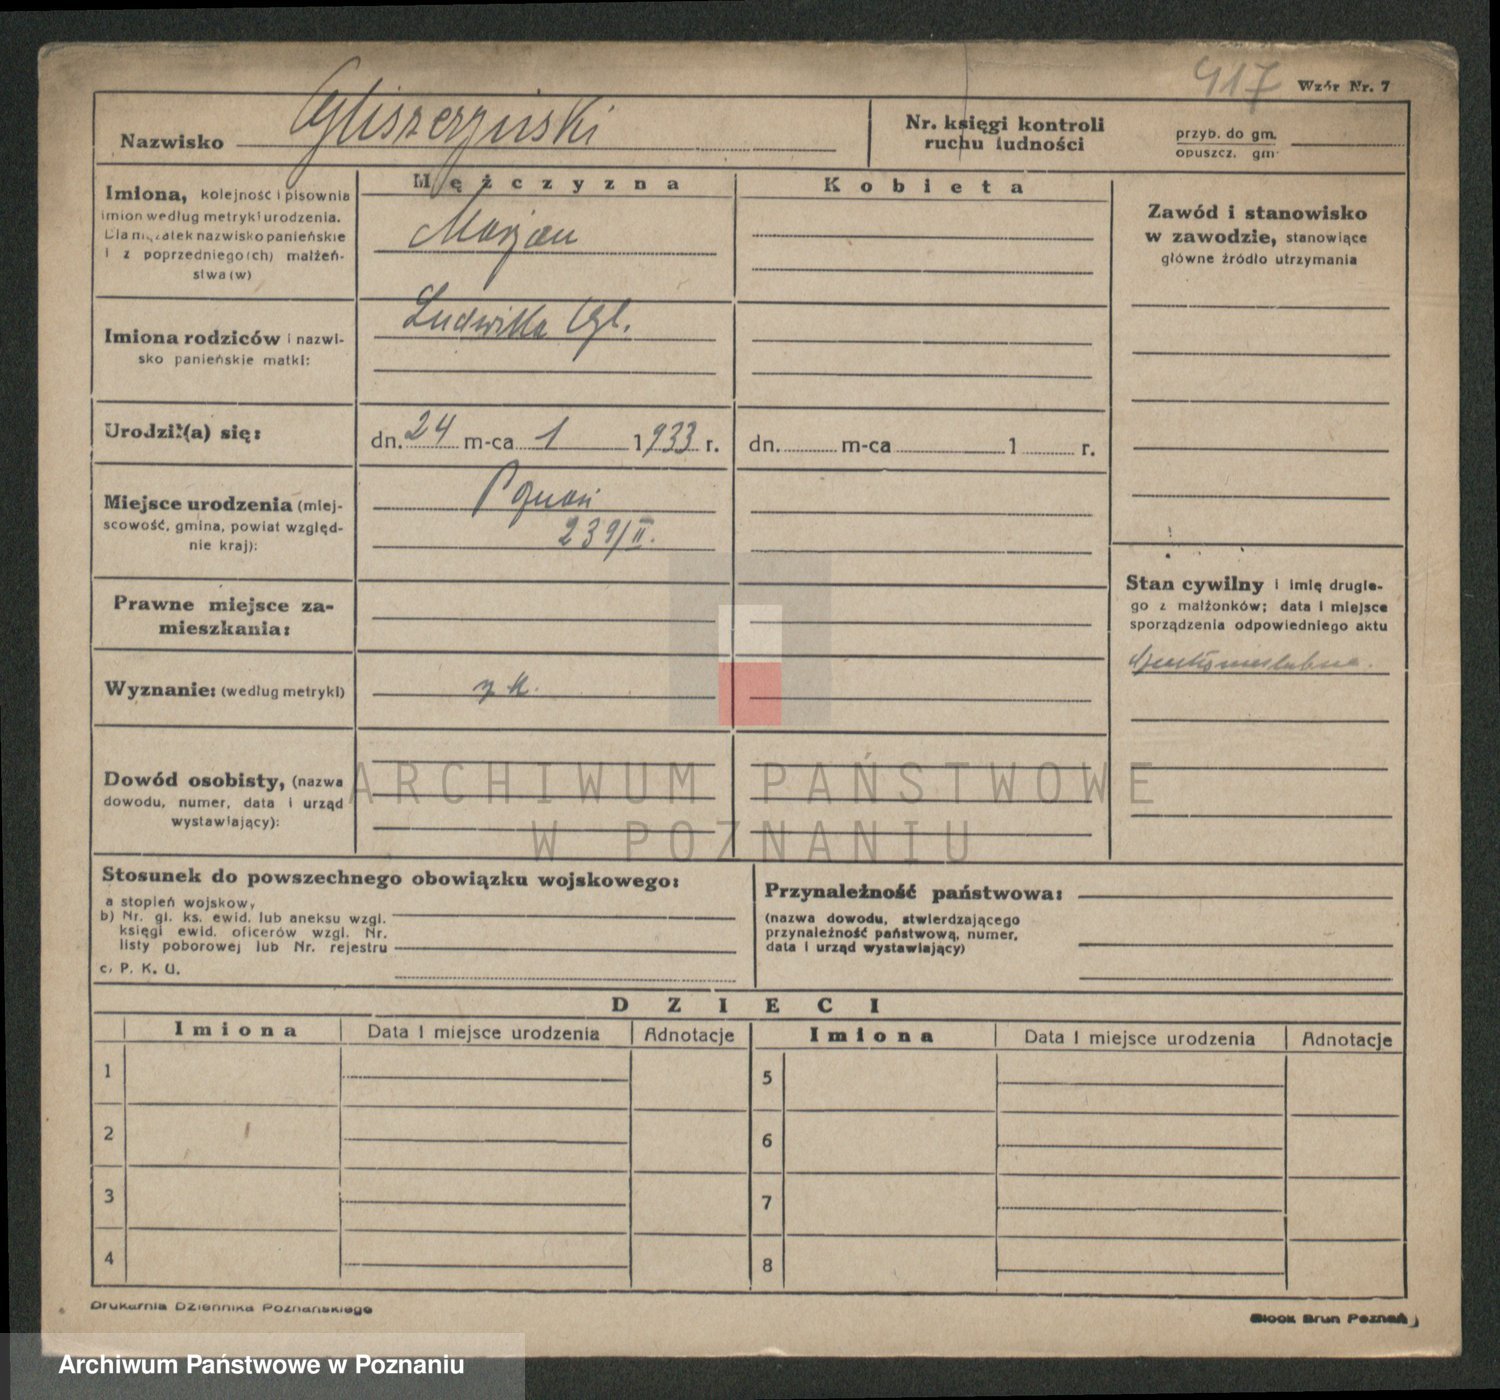 917 Wzór Nr. 7
Nazwisko Gliszczyński
Nr. księgi kontroli
ruchu ludności
przyb. do gm.
opuszcz. gm
Imiona, kolejność i pisownia
imion według metryki urodzenia.
Dla mężatek nazwisko panieńskie
i z poprzedniego(ch) małżeń-
stwa (w)
Mężczyzna
Marjan
Kobieta
Zawód i stanowisko
w zawodzie, stanowiące
główne źródło utrzymania
Imiona rodziców i nazwi-
sko panieńskie matki:
Ludwika Gl.
Urodził(a) się:
dn. 24 m-ca 1 1933 r.
dn. m-ca 1 r.
Miejsce urodzenia (miej-
scowość, gmina, powiat względ-
nie kraj):
Poznań
239/II.
Prawne miejsce za-
mieszkania:
Stan cywilny i imię drugie-
go z małżonków; data i miejsce
sporządzenia odpowiedniego aktu
Wyznanie: (według metryki)
r. k.
Dowód osobisty, (nazwa
dowodu, numer, data i urząd
wystawiający):
ARCHIWUM PAŃSTWOWE
W POZNANIU
Stosunek do powszechnego obowiązku wojskowego:
a stopień wojskowy
b) Nr. gl. ks. ewid. lub aneksu wzgl.
księgi ewid. oficerów wzgl. Nr.
listy poborowej lub Nr. rejestru
c. P. K. U.
Przynależność państwowa:
(nazwa dowodu, stwierdzającego
przynależność państwową, numer,
data i urząd wystawiający)
DZIECI
Imiona Data i miejsce urodzenia Adnotacje Imiona Data i miejsce urodzenia Adnotacje
1 5
2 6
3 7
4 8
Drukarnia Dziennika Poznańskiego
Block Brun Poznań
Archiwum Państwowe w Poznaniu